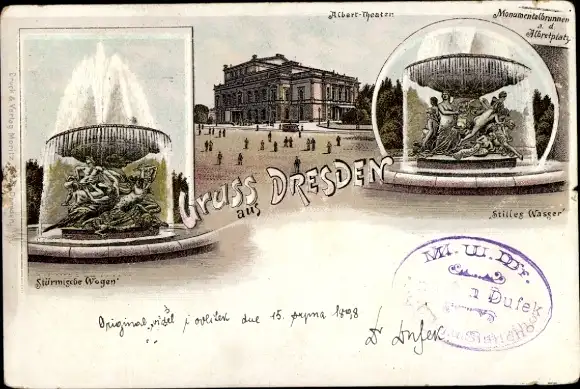 Albert-Theater.
Monumentalbrunnen
a. d.
Albertplatz
Gruss
aus
DRESDEN
Stürmische Wogen"
„Stilles Wasser"
Druck & Verlag
M.U.Dr.
Dufek
Original
dne 15. srpna 1898
Dr Dufek